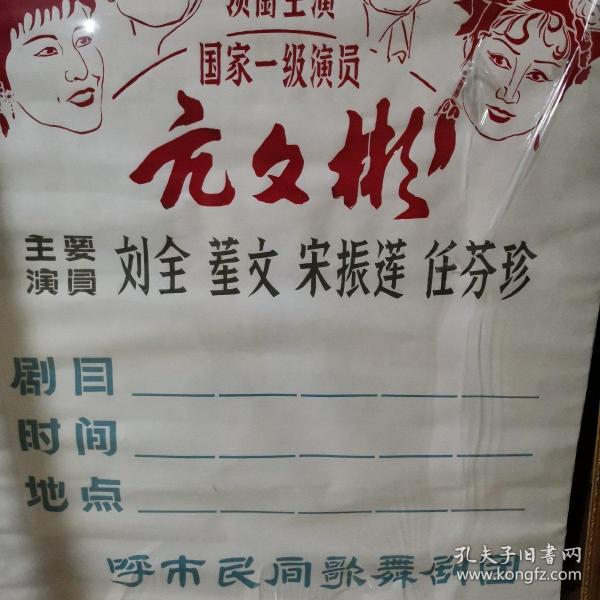 领衔主演
国家一级演员
亢文彬
主要演员 刘全 董文 宋振莲 任芬珍
剧目
时间
地点
呼市民间歌舞剧团
孔夫子旧书网
www.kongfz.com